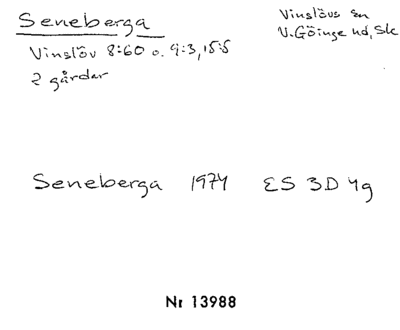 Seneberga
Vinslövs sn
V. Göinge hd, Sk
Vinslöv 8:60 o. 9:3, 15:5
2 gårdar
Seneberga 1974 ES 3D 4g
Nr 13988